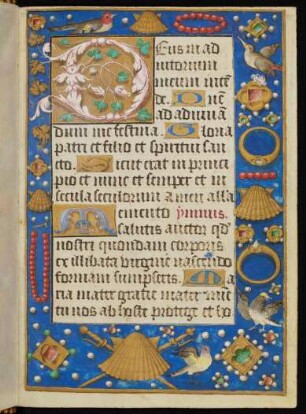 Deus in ad
iutorium
meum inte
de. Dne
ad adiuuan
dum me festina. Gloria
patri et filio et spiritui san
cto. Sicut erat in princi
pio et nunc et semper et in
secula seculorum amen alla
Memento ymnus.
salutis auctor qd
nostri quondam corporis
ex illibata virgine nascendo
formam sumpseris. Ma
ria mater gratie mater mie
tu nos ab hoste protege et ho